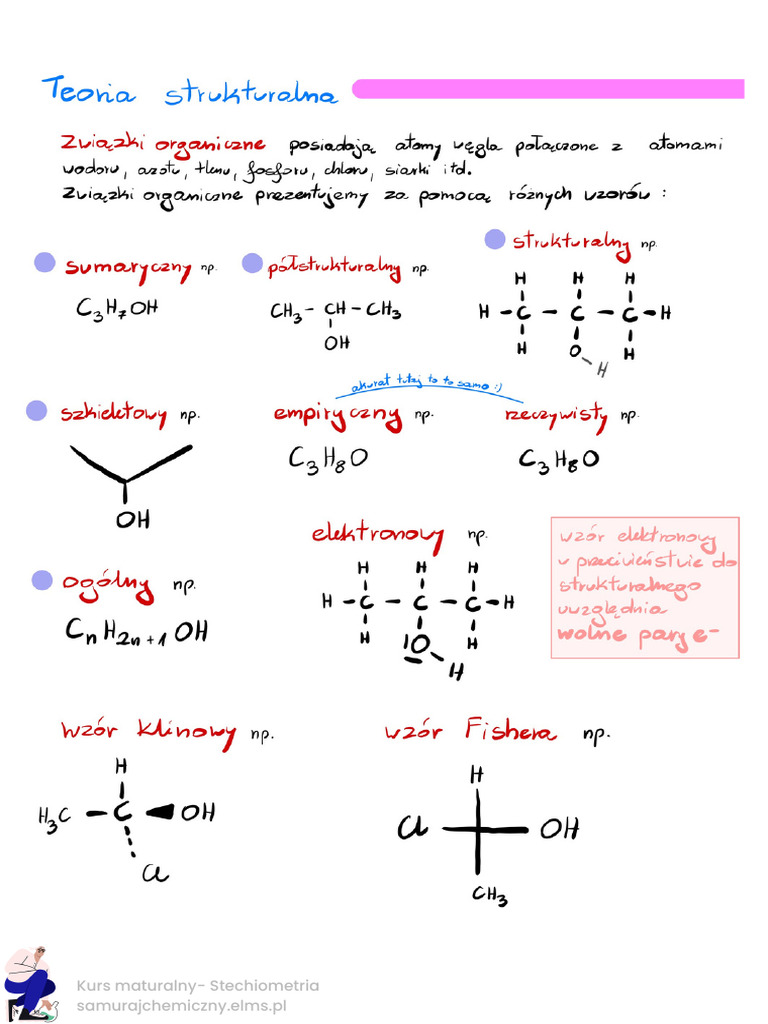 Teoria strukturalna
Związki organiczne posiadają atomy węgla połączone z atomami
wodoru, azotu, tlenu, fosforu, chloru, siarki itd.
Związki organiczne prezentujemy za pomocą różnych wzorów :
sumaryczny np.
C3H7OH
półstrukturalny np.
CH3 – CH – CH3
OH
strukturalny np.
H H H
H – C – C – C – H
H O H
H
akurat tutaj to to samo :)
szkieletowy np.
OH
empiryczny np.
C3H8O
rzeczywisty np.
C3H8O
ogólny np.
CnH2n+1OH
elektronowy np.
H H H
H – C – C – C – H
H |O H
H
wzór elektronowy
w przeciwieństwie do
strukturalnego
uwzględnia
wolne pary e-
wzór klinowy np.
H
H3C – C OH
Cl
wzór Fishera np.
H
Cl OH
CH3
Kurs maturalny- Stechiometria
samurajchemiczny.elms.pl